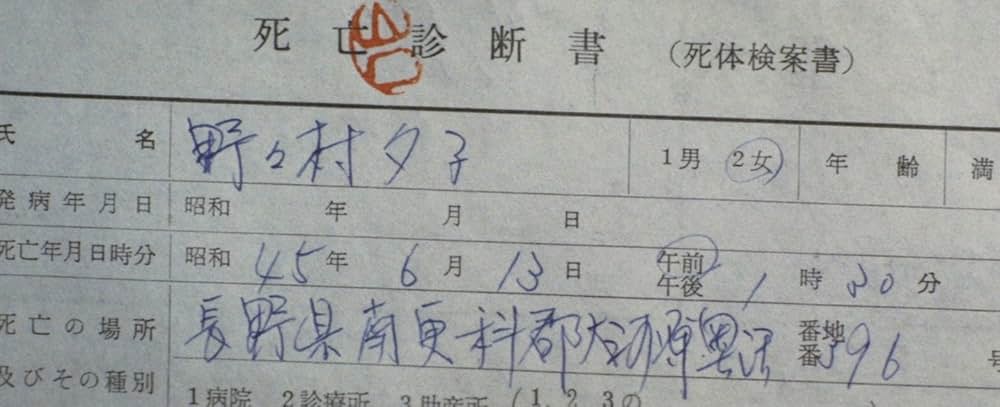 死亡診断書 (死体検案書)
氏名 野々村夕子 1男 2女 年齢 満
発病年月日 昭和 年 月 日
死亡年月日時分 昭和 45年 6月 13日 午前 午後 1時 30分
死亡の場所 長野県南更科郡大河原奥沢 番地 番 396 号
及びその種別 1病院 2診療所 3助産所 (1, 2, 3の